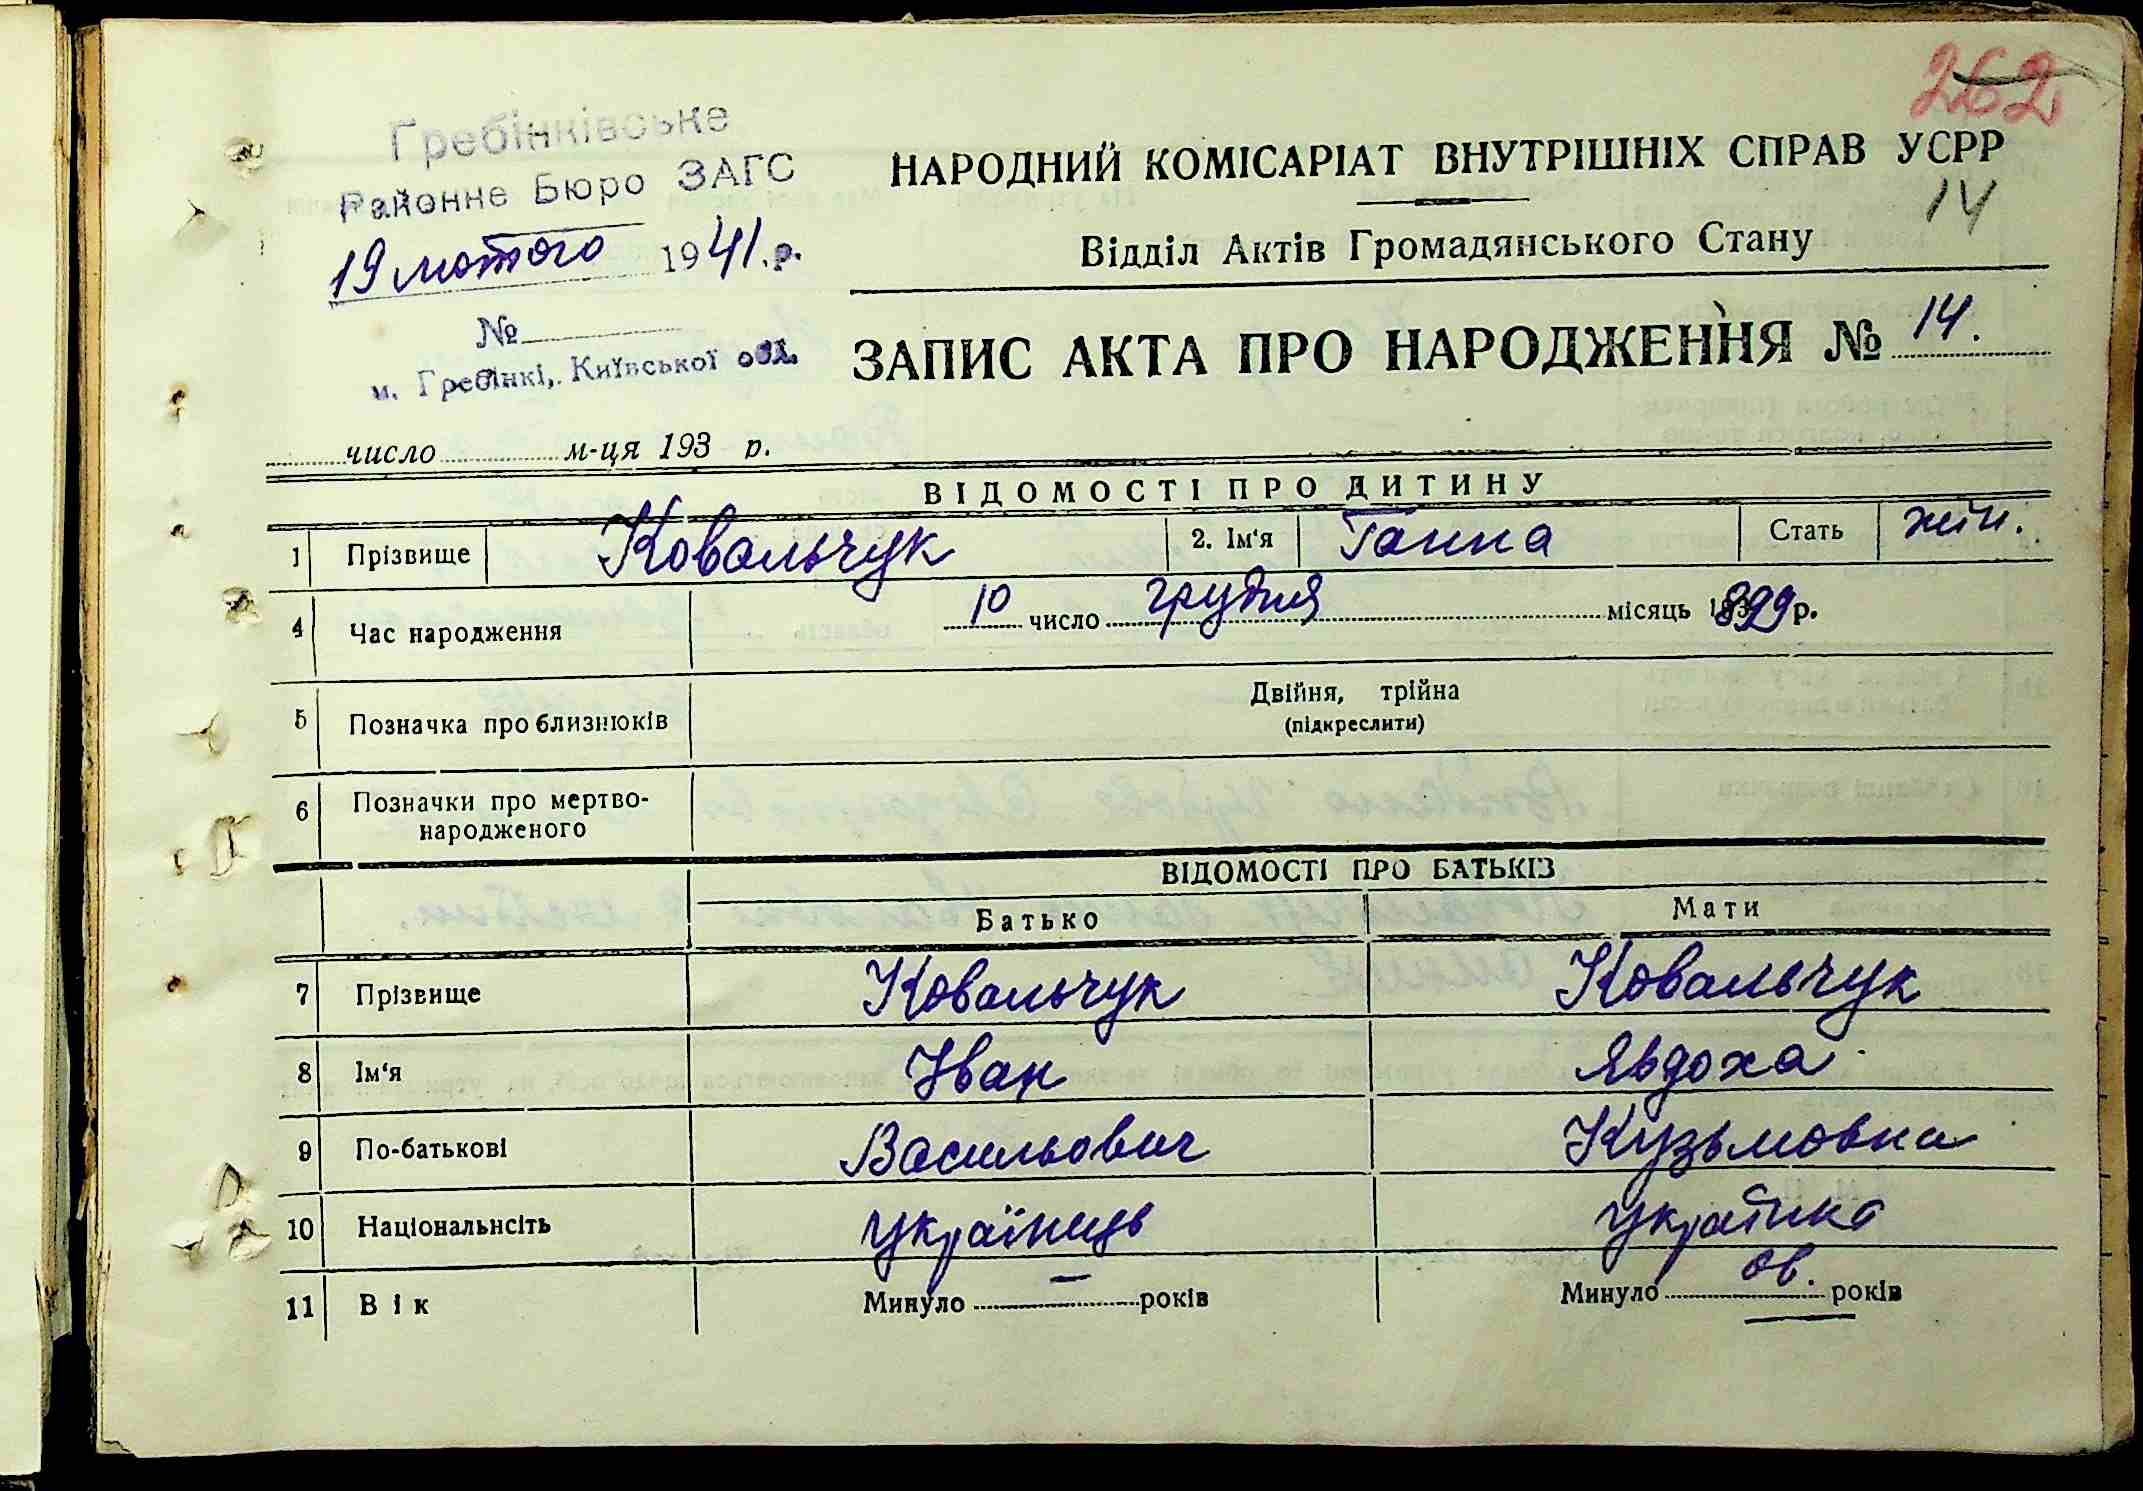 262
Гребінківське
Районне Бюро ЗАГС
19 лютого 1941 р.
№
м. Гребінкі, Київської обл.
НАРОДНИЙ КОМІСАРІАТ ВНУТРІШНІХ СПРАВ УСРР
14
Відділ Актів Громадянського Стану
ЗАПИС АКТА ПРО НАРОДЖЕННЯ № 14.
число м-ця 193 р.
ВІДОМОСТІ ПРО ДИТИНУ
1 Прізвище Ковальчук 2. Ім'я Ганна Стать жін.
4 Час народження 10 число грудня місяць 1899 р.
5 Позначка про близнюків Двійня, трійна
(підкреслити)
6 Позначки про мертво-
народженого
ВІДОМОСТІ ПРО БАТЬКІВ
Батько Мати
7 Прізвище Ковальчук Ковальчук
8 Ім'я Іван Явдоха
9 По-батькові Васильович Кузьмовна
10 Національнсіть українць українка
11 Вік Минуло — років Минуло років